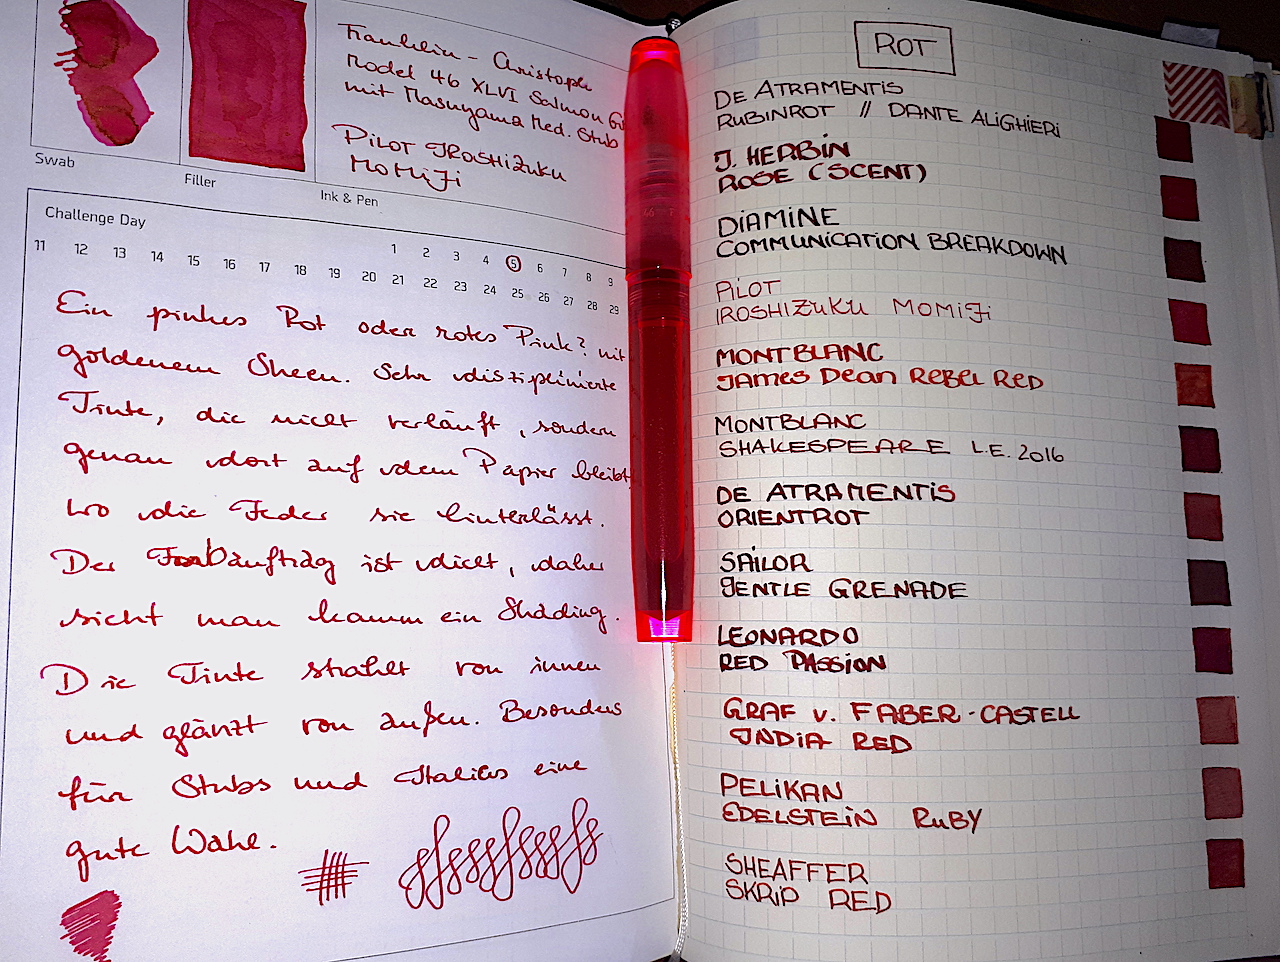 Franklin-Christoph
Model 46 XLVI Salmon
mit Masuyama Med. Stub
PILOT IROSHIZUKU
MOMIJI
Swab
Filler
Ink & Pen
Challenge Day
1 2 3 4 5 6 7 8 9
11 12 13 14 15 16 17 18 19 20 21 22 23 24 25 26 27 28 29
Ein pinkes Rot oder rotes Pink? mit
goldenem Sheen. Sehr disziplinierte
Tinte, die nicht verläuft, sondern
genau dort auf dem Papier bleibt,
wo die Feder sie hinterlässt.
Der Farbauftrag ist dicht, daher
sieht man kaum ein Shading.
Die Tinte strahlt von innen
und glänzt von außen. Besonders
für Stubs und Italics eine
gute Wahl.
ROT
DE ATRAMENTIS
RUBINROT // DANTE ALIGHIERI
J. HERBIN
ROSE (SCENT)
DIAMINE
COMMUNICATION BREAKDOWN
PILOT
IROSHIZUKU MOMIJI
MONTBLANC
JAMES DEAN REBEL RED
MONTBLANC
SHAKESPEARE L.E. 2016
DE ATRAMENTIS
ORIENTROT
SAILOR
GENTLE GRENADE
LEONARDO
RED PASSION
GRAF v. FABER-CASTELL
INDIA RED
PELIKAN
EDELSTEIN RUBY
SHEAFFER
SKRIP RED